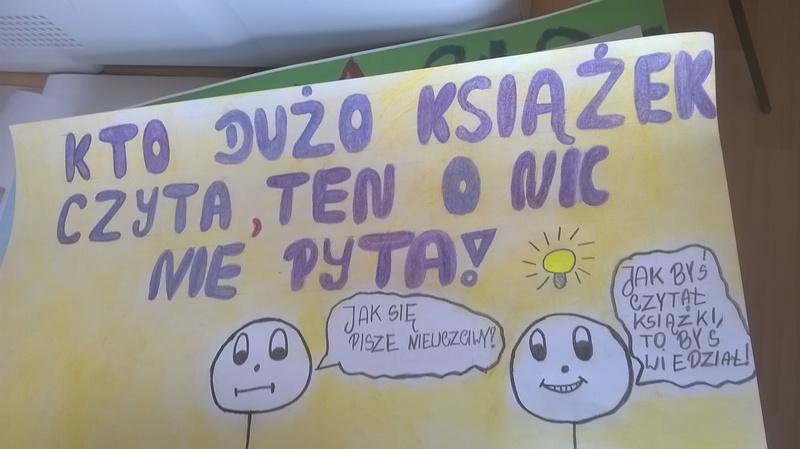 KTO DUŻO KSIĄŻEK
CZYTA, TEN O NIC
NIE PYTA!
JAK SIĘ
PISZE NIEUCZCIWY?
JAK BYŚ
CZYTAŁ
KSIĄŻKI,
TO BYŚ
WIEDZIAŁ!